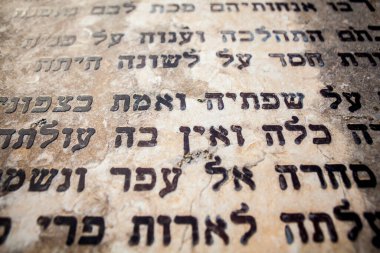 רבו אנחותיהם מכת
התהלכה וענות על פניה
חסד על לשונה חיתה
על שפתיה ואמת בצפוני
ה כלה ואין בה עולתה
סחרה אל עפר ונשמ
לתה לארות פרי